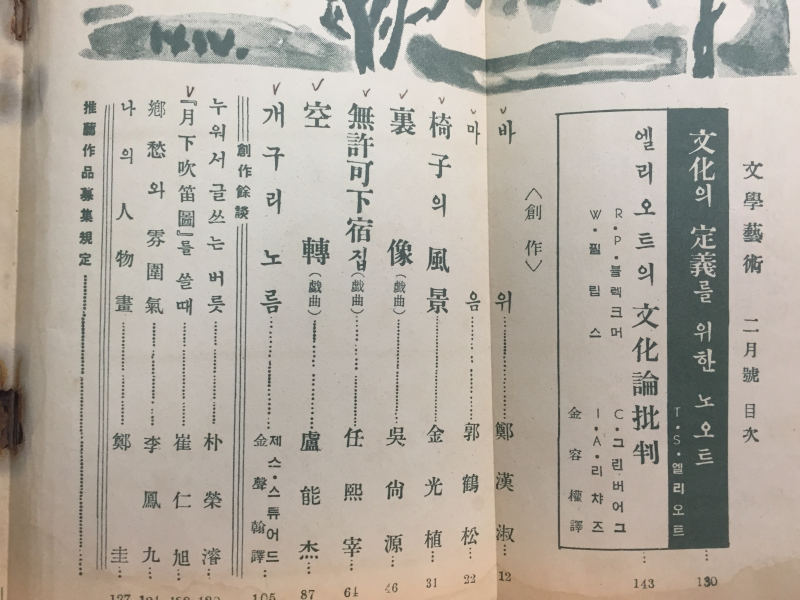 文學藝術 二月號 目次
文化의 定義를 위한 노오트 T·S·엘리오트 130
엘리오트의 文化論批判 143
R·P·블렉크머 C·그린버어그
W·필립스 I·A·리챠즈
金容權譯
〈創作〉
바위 鄭漢淑 12
마음 郭鶴松 22
椅子의 風景 金光植 31
裏像(戱曲) 吳尙源 46
無許可下宿집(戱曲) 任熙宰 64
空轉(戱曲) 盧能杰 87
개구리 노름 제스·스튜어드 金聲翰譯 105
創作餘談
누워서 글쓰는 버릇 朴榮濬
『月下吹笛圖』를 쓸때 崔仁旭
鄕愁와 雰圍氣 李鳳九
나의 人物畫 鄭圭
推薦作品募集規定